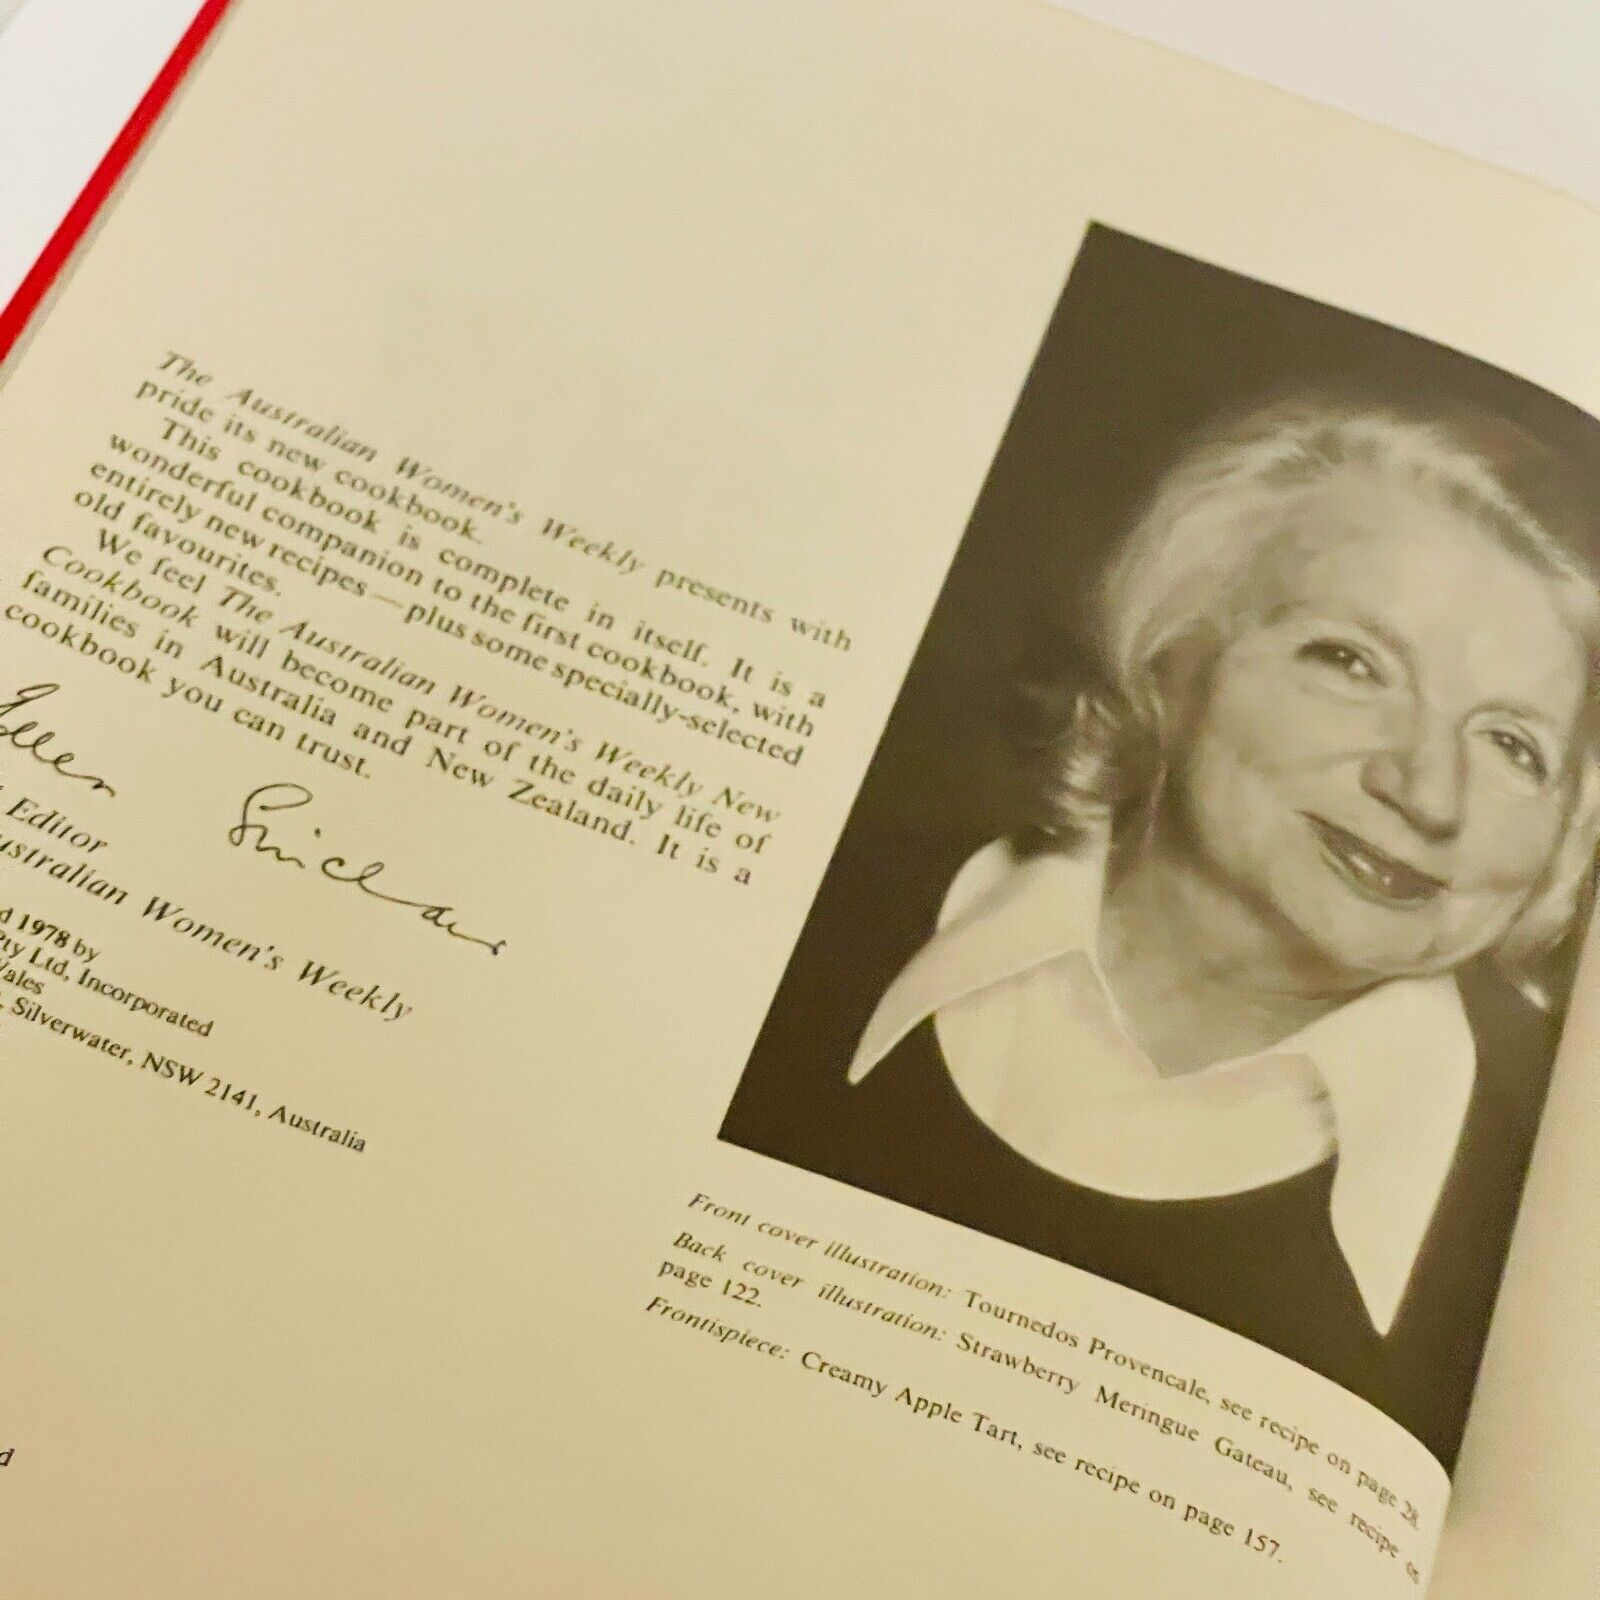 The Australian Women's Weekly presents with
pride its new cookbook.
This cookbook is complete in itself. It is a
wonderful companion to the first cookbook, with
entirely new recipes—plus some specially-selected
old favourites.
We feel The Australian Women's Weekly New
Cookbook will become part of the daily life of
families in Australia and New Zealand. It is a
cookbook you can trust.
Ellen Sinclair
Editor
Australian Women's Weekly
1978 by
Pty Ltd, Incorporated
Wales
Silverwater, NSW 2141, Australia
Front cover illustration: Tournedos Provencale, see recipe on page 28.
Back cover illustration: Strawberry Meringue Gateau, see recipe on
page 122.
Frontispiece: Creamy Apple Tart, see recipe on page 157.